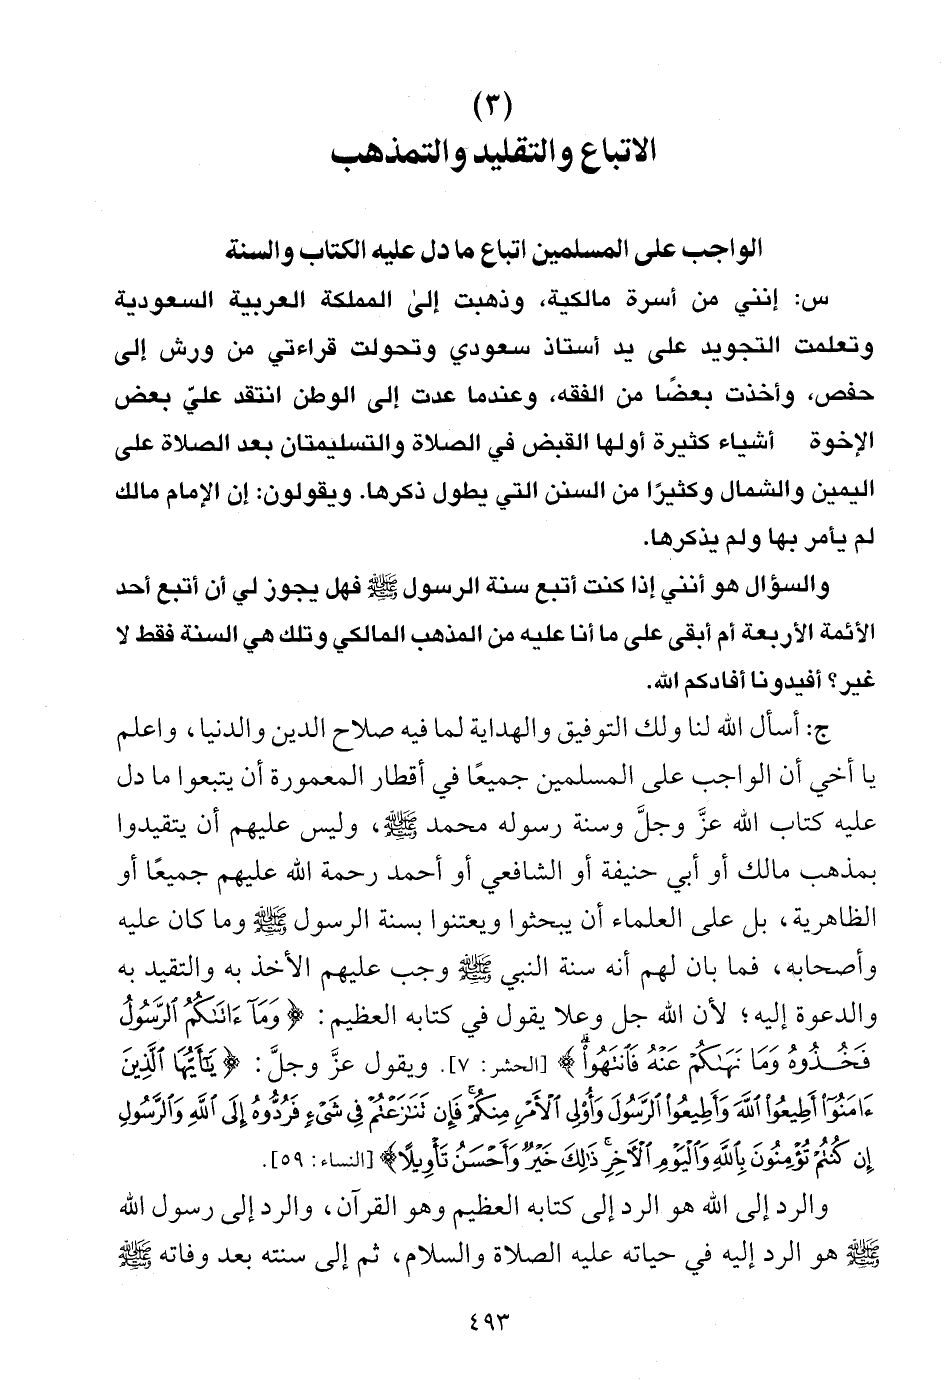 (٣)
الاتباع والتقليد والتمذهب
الواجب على المسلمين اتباع ما دل عليه الكتاب والسنة
س: إنني من أسرة مالكية، وذهبت إلىٰ المملكة العربية السعودية
وتعلمت التجويد على يد أستاذ سعودي وتحولت قراءتي من ورش إلى
حفص، وأخذت بعضًا من الفقه، وعندما عدت إلى الوطن انتقد عليّ بعض
الإخوة أشياء كثيرة أولها القبض في الصلاة والتسليمتان بعد الصلاة على
اليمين والشمال وكثيرًا من السنن التي يطول ذكرها. ويقولون: إن الإمام مالك
لم يأمر بها ولم يذكرها.
والسؤال هو أنني إذا كنت أتبع سنة الرسول ﷺ فهل يجوز لي أن أتبع أحد
الأئمة الأربعة أم أبقى على ما أنا عليه من المذهب المالكي وتلك هي السنة فقط لا
غير؟ أفيدونا أفادكم الله.
ج: أسأل الله لنا ولك التوفيق والهداية لما فيه صلاح الدين والدنيا، واعلم
يا أخي أن الواجب على المسلمين جميعًا في أقطار المعمورة أن يتبعوا ما دل
عليه كتاب الله عزَّ وجلَّ وسنة رسوله محمد ﷺ، وليس عليهم أن يتقيدوا
بمذهب مالك أو أبي حنيفة أو الشافعي أو أحمد رحمة الله عليهم جميعًا أو
الظاهرية، بل على العلماء أن يبحثوا ويعتنوا بسنة الرسول ﷺ وما كان عليه
وأصحابه، فما بان لهم أنه سنة النبي ﷺ وجب عليهم الأخذ به والتقيد به
والدعوة إليه؛ لأن الله جل وعلا يقول في كتابه العظيم: ﴿ وَمَآ ءَاتَىٰكُمُ ٱلرَّسُولُ
فَخُـذُوهُ وَمَا نَهَىٰكُمْ عَنْهُ فَٱنتَهُوا۟ۚ ﴾ [الحشر: ٧]. ويقول عزَّ وجلَّ: ﴿ يَـٰٓأَيُّهَا ٱلَّذِينَ
ءَامَنُوٓا۟ أَطِيعُوا۟ ٱللَّهَ وَأَطِيعُوا۟ ٱلرَّسُولَ وَأُو۟لِى ٱلْأَمْرِ مِنكُمْ ۖ فَإِن تَنَـٰزَعْتُمْ فِى شَىْءٍ فَرُدُّوهُ إِلَى ٱللَّهِ وَٱلرَّسُولِ
إِن كُنتُمْ تُؤْمِنُونَ بِٱللَّهِ وَٱلْيَوْمِ ٱلْـَٔاخِرِ ۚ ذَٰلِكَ خَيْرٌ وَأَحْسَنُ تَأْوِيلًا﴾ [النساء: ٥٩].
والرد إلى الله هو الرد إلى كتابه العظيم وهو القرآن، والرد إلى رسول الله
ﷺ هو الرد إليه في حياته عليه الصلاة والسلام، ثم إلى سنته بعد وفاته ﷺ
٤٩٣